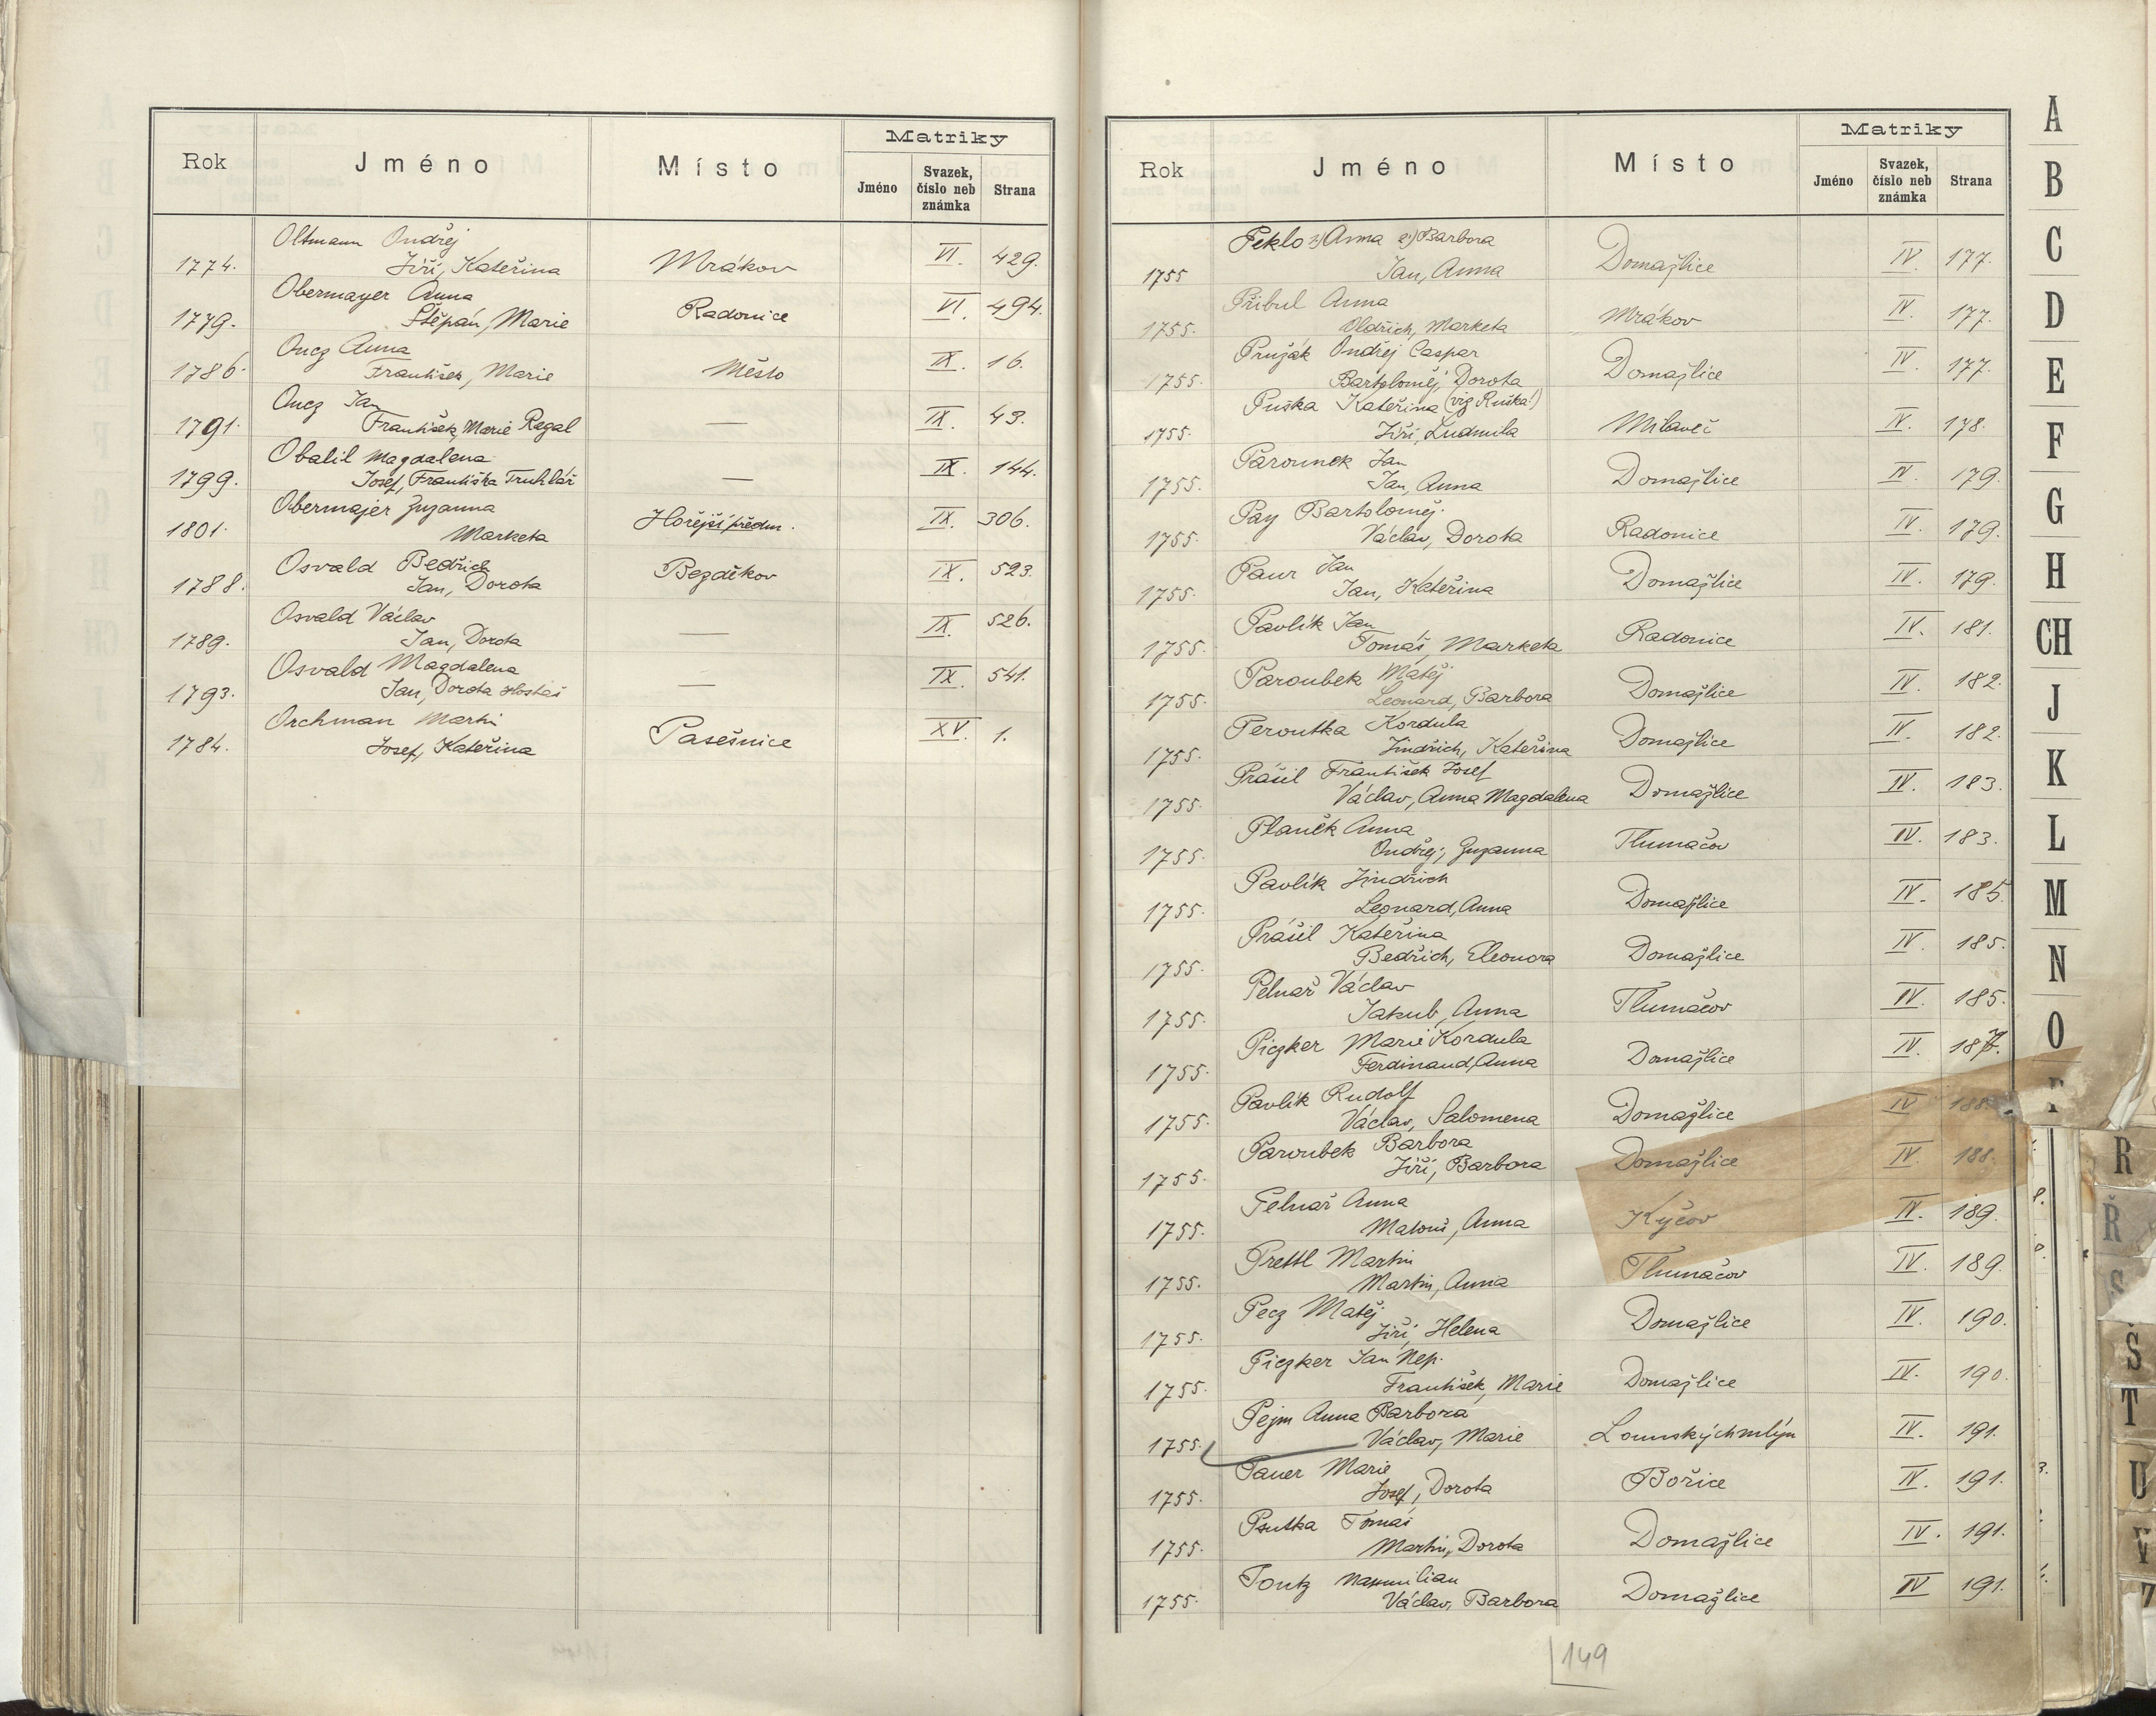 Matriky
Rok Jméno Místo Jméno Svazek, číslo neb známka Strana
Oltmann Ondřej
1774. Jiří, Kateřina Mrákov VI. 429.
Obermayer Anna
1779. Štěpán, Marie Radonice VI. 494.
Oncz Anna
1786. František, Marie Město IX. 16.
Oncz Jan
1791. František, Marie Regal — IX. 43.
Obalil Magdalena
1799. Josef, Františka Truhlář — IX. 144.
Obermajer Zuzanna
1801. Marketa Hořejší předm. IX. 306.
Osvald Bedřich
1788. Jan, Dorota Bezděkov IX. 523.
Osvald Václav
1789. Jan, Dorota — IX. 526.
Osvald Magdalena
1793. Jan, Dorota Hostaš — IX. 541.
Orchman Martin
1784. Josef, Kateřina Pasešnice XV. 1.
Matriky
Rok Jméno Místo Jméno Svazek, číslo neb známka Strana
Peklo Anna Barbora
1755 Jan, Anna Domažlice IV. 177.
Přibul Anna
1755. Oldřich, Marketa Mrákov IV. 177.
Pružák Ondřej Caspar
1755. Bartoloměj, Dorota Domažlice IV. 177.
Puška Kateřina (viz Ruška!)
1755. Jiří, Ludmila Milaveč IV. 178.
Parounek Jan
1755. Jan, Anna Domažlice IV. 179.
Pay Bartoloměj.
1755. Václav, Dorota Radonice IV. 179.
Paur Jan
1755. Jan, Kateřina Domažlice IV. 179.
Pavlík Jan
1755. Tomáš, Marketa Radonice IV. 181.
Paroubek Matěj
1755. Leonard, Barbora Domažlice IV. 182.
Peroutka Kordula
1755. Jindřich, Kateřina Domažlice IV. 182.
Prášil František Josef
1755. Václav, Anna Magdalena Domažlice IV. 183.
Planěk Anna
1755. Ondřej, Zuzanna Tlumačov IV. 183.
Pavlík Jindřich
1755. Leonard, Anna Domažlice IV. 185.
Prášil Kateřina
1755. Bedřich, Eleonora Domažlice IV. 185.
Pelnař Václav
1755. Jakub, Anna Tlumačov IV. 185.
Piczker Marie Kordula
1755. Ferdinand, Anna Domažlice IV. 187.
Pavlík Rudolf
1755. Václav, Salomena Domažlice IV 188.
Paroubek Barbora
1755. Jiří, Barbora Domažlice IV. 188.
Pelnař Anna
1755. Matouš, Anna Kyčov IV. 189.
Prettl Martin
1755. Martin, Anna Tlumačov IV. 189.
Pecz Matěj.
1755. Jiří, Helena Domažlice IV. 190.
Piczker Jan Nep.
1755. František, Marie Domažlice IV. 190.
Pejm Anna Barbora
1755. Václav, Marie Lounských mlýn IV. 191.
Pauer Marie
1755. Josef, Dorota Bořice IV. 191.
Psutka Tomáš
1755. Martin, Dorota Domažlice IV. 191.
Pontz Maxmilian
1755. Václav, Barbora Domažlice IV 191.
149
A
B
C
D
E
F
G
H
CH
J
K
L
M
N
O
R
Ř
S
Š
T
U
V
Z